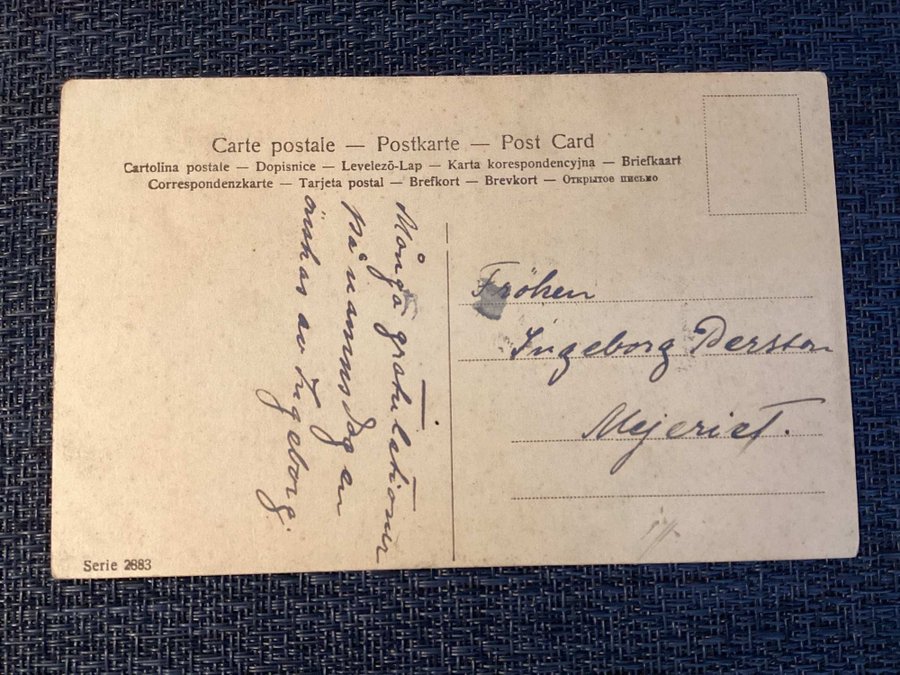 Carte postale — Postkarte — Post Card
Cartolina postale — Dopisnice — Levelező-Lap — Karta korespondencyjna — Briefkaart
Correspondenzkarte — Tarjeta postal — Brefkort — Brevkort — Открытое письмо
Många gratulationer
på namnsdagen
önskas av Ingeborg.
Fröken
Ingeborg Persson
Mejeriet.
Serie 2883